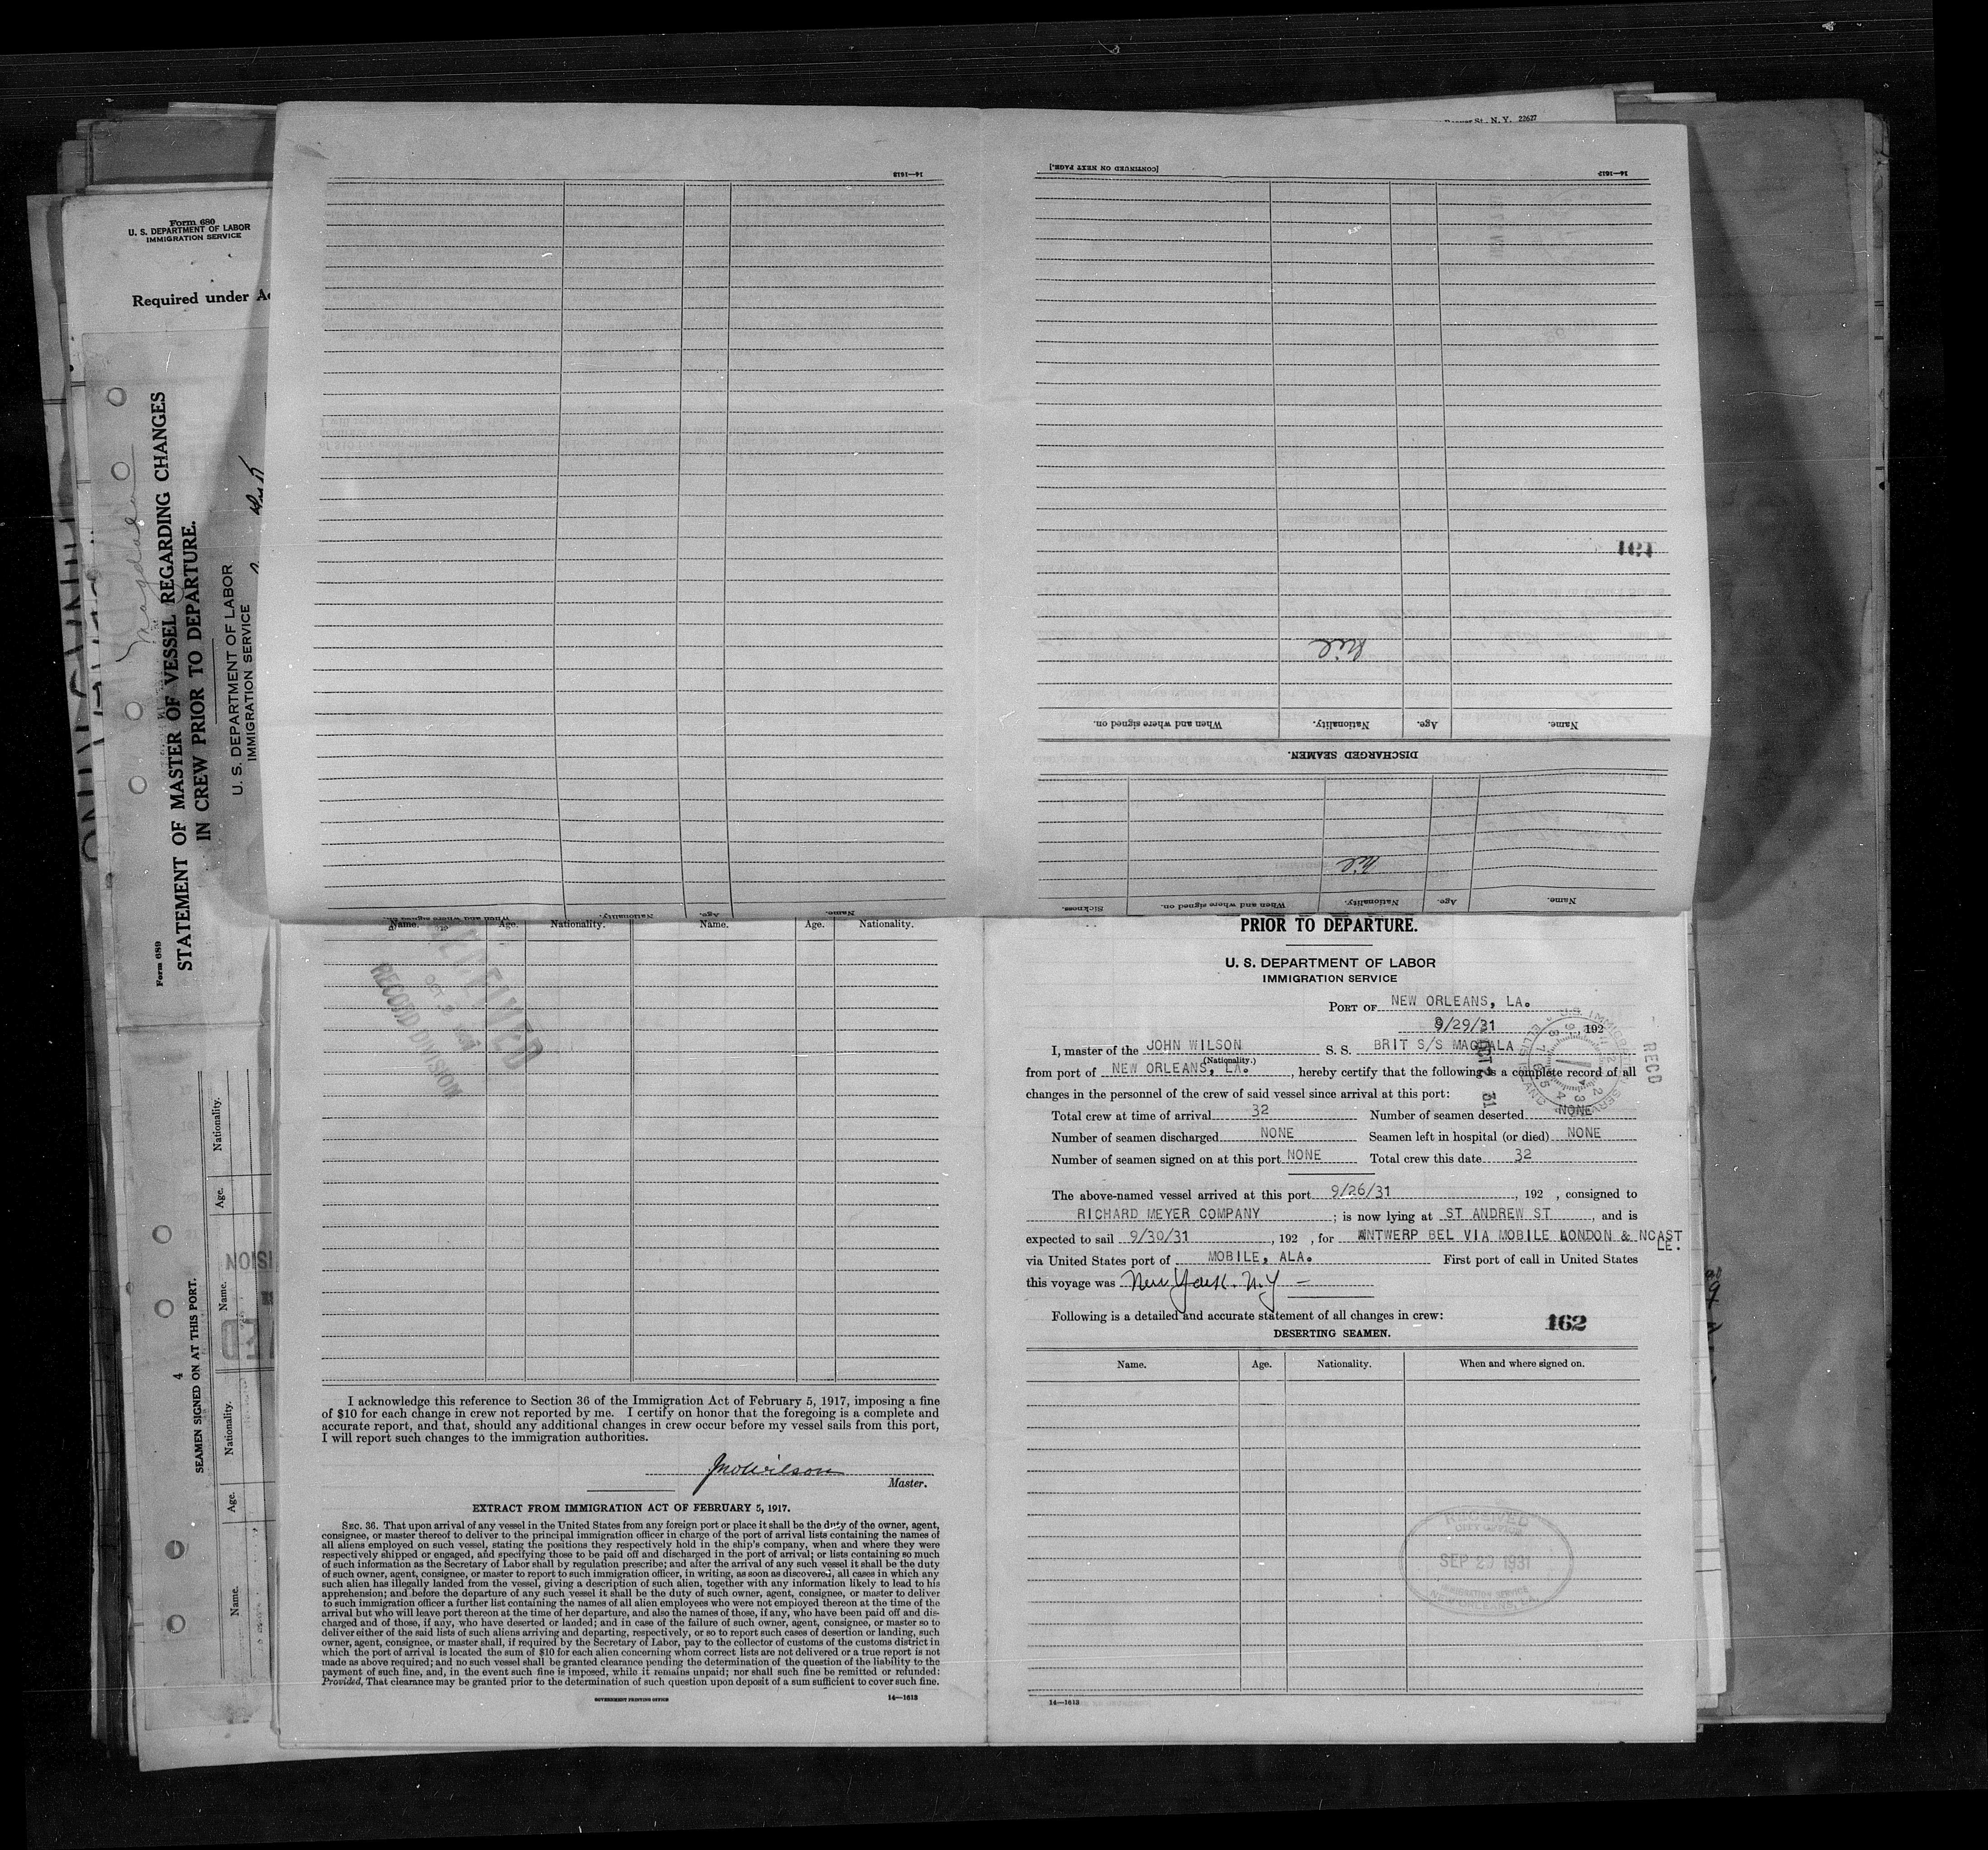 Beaver St. N. Y. 22627
Form 680
U. S. DEPARTMENT OF LABOR
IMMIGRATION SERVICE
Required under
Form 689
STATEMENT OF MASTER OF VESSEL REGARDING CHANGES
IN CREW PRIOR TO DEPARTURE.
U. S. DEPARTMENT OF LABOR
IMMIGRATION SERVICE
4
SEAMEN SIGNED ON AT THIS PORT.
Name. Age. Nationality. Name. Age. Nationality.
14—1613
[CONTINUED ON NEXT PAGE.]
14—1612
161
nil
Name. Age. Nationality. When and where signed on.
DISCHARGED SEAMEN.
nil
Name. Age. Nationality. When and where signed on. Sickness.
Name. Age. Nationality. When and where signed on.
Name. Age. Nationality. Name. Age. Nationality.
RECEIVED
OCT 3 1931
RECORD DIVISION
I acknowledge this reference to Section 36 of the Immigration Act of February 5, 1917, imposing a fine
of $10 for each change in crew not reported by me. I certify on honor that the foregoing is a complete and
accurate report, and that, should any additional changes in crew occur before my vessel sails from this port,
I will report such changes to the immigration authorities.
Jno Wilson
Master.
EXTRACT FROM IMMIGRATION ACT OF FEBRUARY 5, 1917.
SEC. 36. That upon arrival of any vessel in the United States from any foreign port or place it shall be the duty of the owner, agent,
consignee, or master thereof to deliver to the principal immigration officer in charge of the port of arrival lists containing the names of
all aliens employed on such vessel, stating the positions they respectively hold in the ship's company, when and where they were
respectively shipped or engaged, and specifying those to be paid off and discharged in the port of arrival; or lists containing so much
of such information as the Secretary of Labor shall by regulation prescribe; and after the arrival of any such vessel it shall be the duty
of such owner, agent, consignee, or master to report to such immigration officer, in writing, as soon as discovered, all cases in which any
such alien has illegally landed from the vessel, giving a description of such alien, together with any information likely to lead to his
apprehension; and before the departure of any such vessel it shall be the duty of such owner, agent, consignee, or master to deliver
to such immigration officer a further list containing the names of all alien employees who were not employed thereon at the time of the
arrival but who will leave port thereon at the time of her departure, and also the names of those, if any, who have been paid off and dis-
charged and of those, if any, who have deserted or landed; and in case of the failure of such owner, agent, consignee, or master so to
deliver either of the said lists of such aliens arriving and departing, respectively, or so to report such cases of desertion or landing, such
owner, agent, consignee, or master shall, if required by the Secretary of Labor, pay to the collector of customs of the customs district in
which the port of arrival is located the sum of $10 for each alien concerning whom correct lists are not delivered or a true report is not
made as above required; and no such vessel shall be granted clearance pending the determination of the question of the liability to the
payment of such fine, and, in the event such fine is imposed, while it remains unpaid; nor shall such fine be remitted or refunded:
Provided, That clearance may be granted prior to the determination of such question upon deposit of a sum sufficient to cover such fine.
GOVERNMENT PRINTING OFFICE 14—1613
PRIOR TO DEPARTURE.
U. S. DEPARTMENT OF LABOR
IMMIGRATION SERVICE
PORT OF NEW ORLEANS, LA.
9/29/31, 192
I, master of the JOHN WILSON S. S. BRIT S/S MAGDALA
(Nationality.)
from port of NEW ORLEANS, LA., hereby certify that the following is a complete record of all
changes in the personnel of the crew of said vessel since arrival at this port:
Total crew at time of arrival 32 Number of seamen deserted NONE
Number of seamen discharged NONE Seamen left in hospital (or died) NONE
Number of seamen signed on at this port NONE Total crew this date 32
The above-named vessel arrived at this port 9/26/31, 192 , consigned to
RICHARD MEYER COMPANY; is now lying at ST ANDREW ST, and is
expected to sail 9/30/31, 192 , for ANTWERP BEL VIA MOBILE LONDON & NCAST
LE.
via United States port of MOBILE, ALA. First port of call in United States
this voyage was New York. N.Y —
Following is a detailed and accurate statement of all changes in crew:
162
DESERTING SEAMEN.
Name. Age. Nationality. When and where signed on.
U.S. IMMIGRATION SERVICE ELLIS ISLAND
OCT 2 31
RECD
RECEIVED
SEP 29 1931
IMMIGRATION SERVICE
NEW ORLEANS, LA.
14—1613